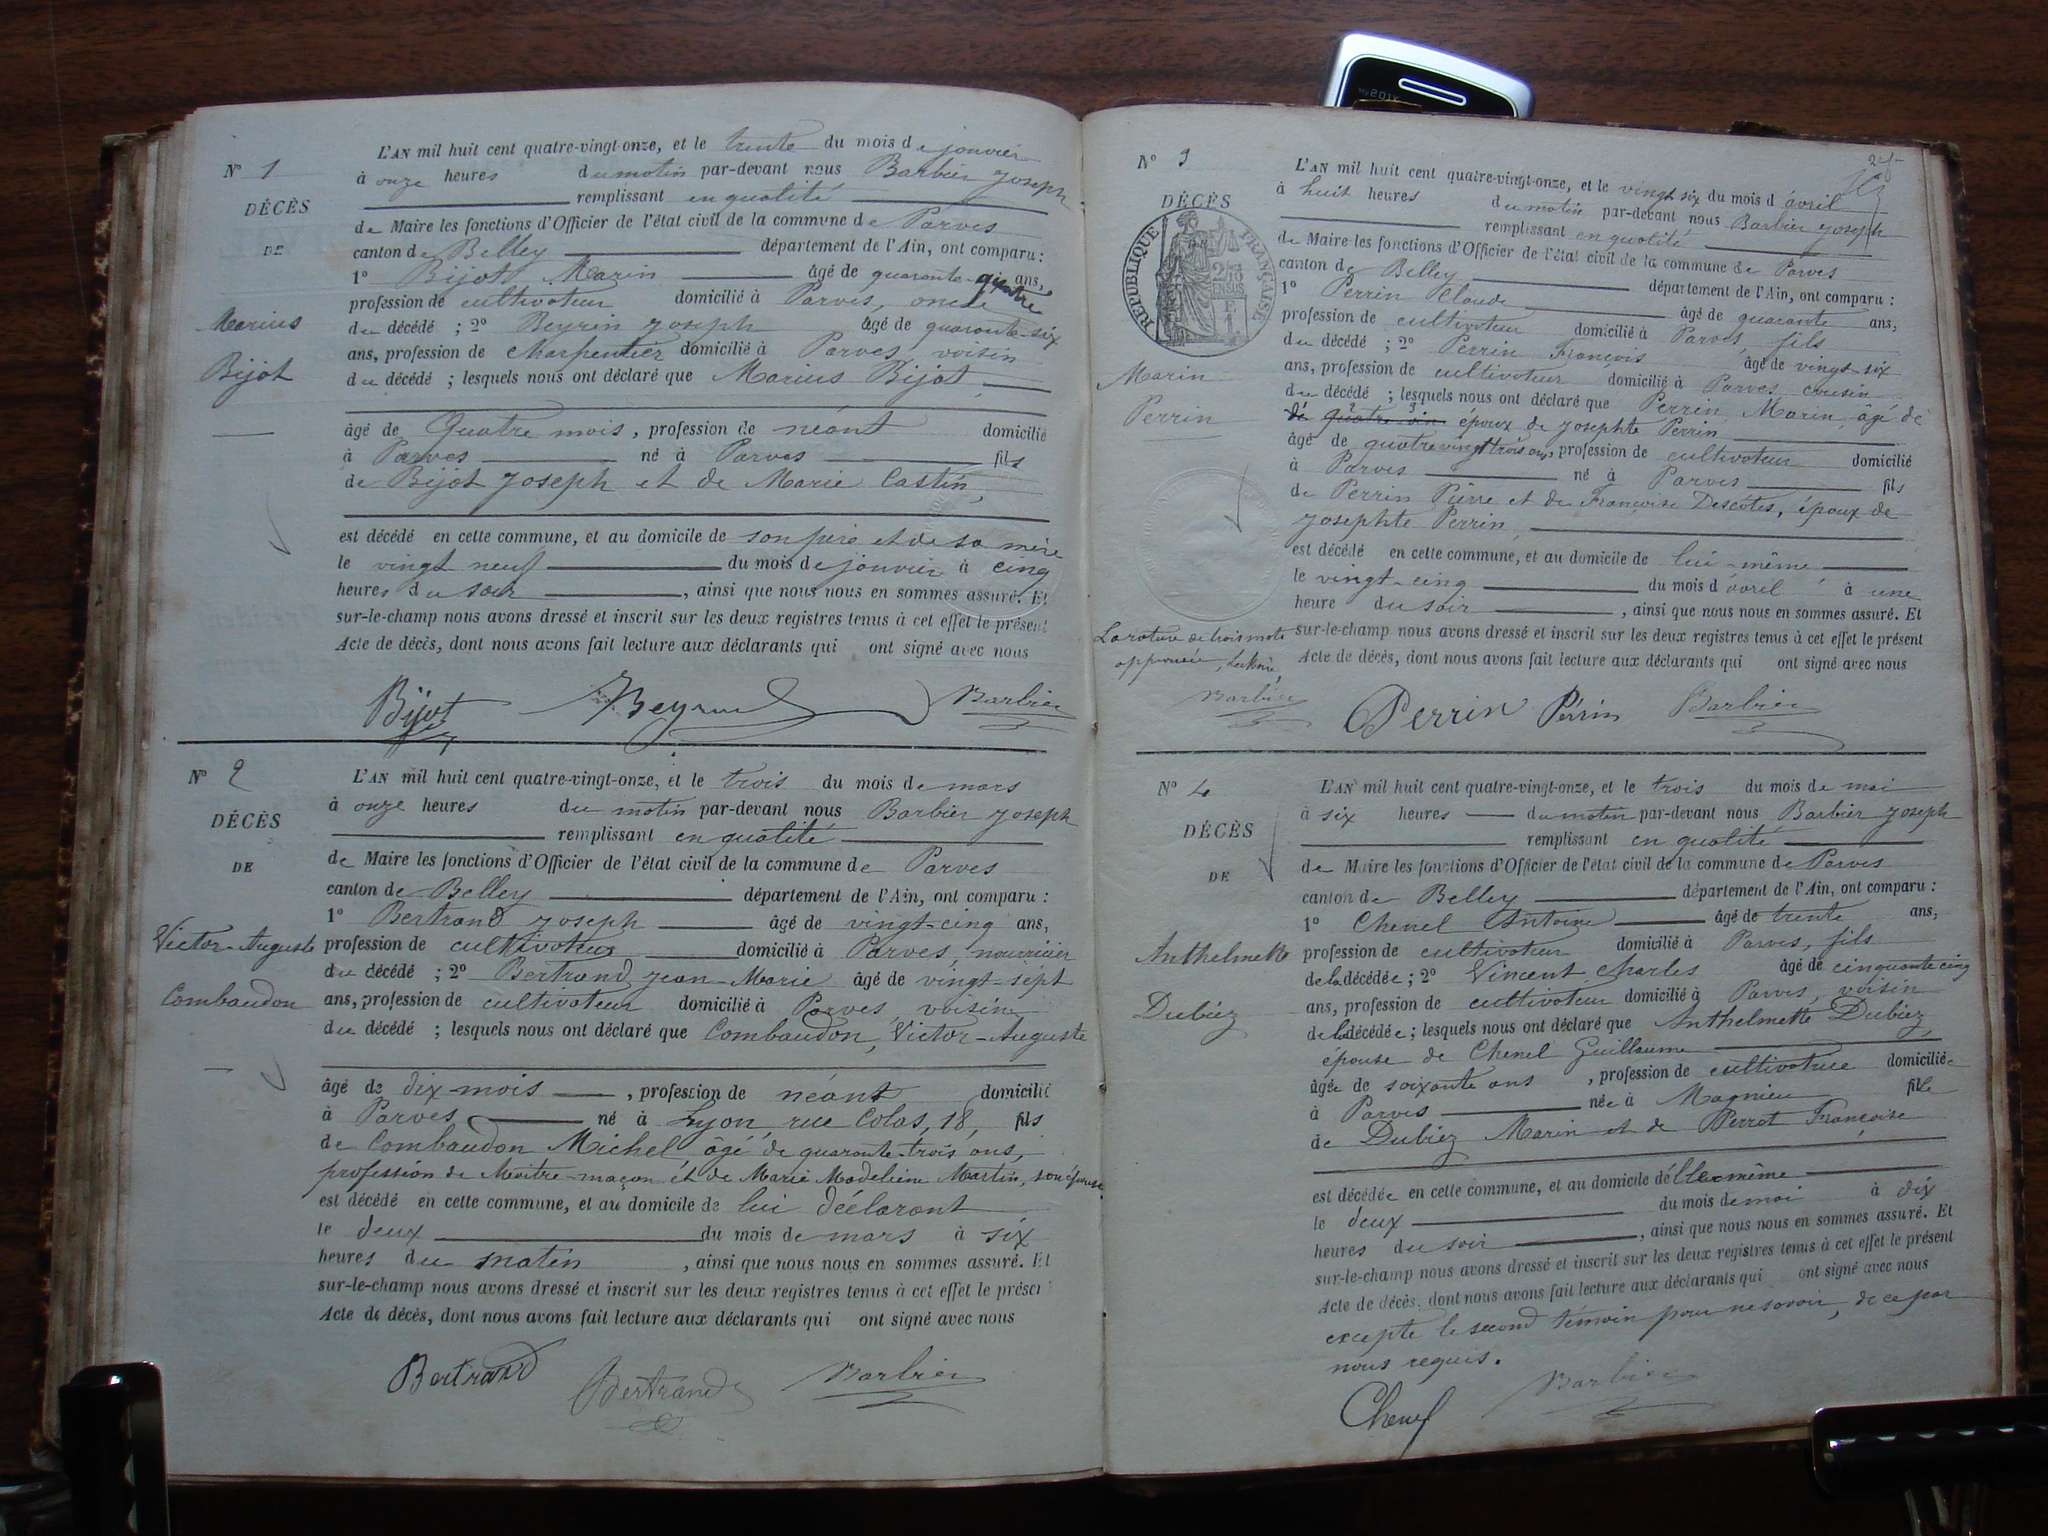 N° 1
DÉCÈS
DE
Marius
Bijot
L'AN mil huit cent quatre-vingt-onze, et le trente du mois de janvier
à onze heures du matin par-devant nous Barbier Joseph
remplissant en qualité
de Maire les fonctions d'Officier de l'état civil de la commune de Parves
canton de Belley département de l'Ain, ont comparu :
1° Bijot Marin âgé de quarante-quatre ans,
profession de cultivateur domicilié à Parves, oncle
du décédé ; 2° Beyrin Joseph âgé de quarante-six
ans, profession de charpentier domicilié à Parves, voisin
du décédé ; lesquels nous ont déclaré que Marius Bijot,
âgé de Quatre mois, profession de néant domicilié
à Parves né à Parves fils
de Bijot Joseph et de Marie Castin,
est décédé en cette commune, et au domicile de son père et de sa mère
le vingt neuf du mois de janvier à cinq
heures du soir, ainsi que nous nous en sommes assuré. Et
sur-le-champ nous avons dressé et inscrit sur les deux registres tenus à cet effet le présent
Acte de décès, dont nous avons fait lecture aux déclarants qui ont signé avec nous
Bijot Barbier
N° 2
DÉCÈS
DE
Victor-Auguste
Combaudon
L'AN mil huit cent quatre-vingt-onze, et le trois du mois de mars
à onze heures du matin par-devant nous Barbier Joseph
remplissant en qualité
de Maire les fonctions d'Officier de l'état civil de la commune de Parves
canton de Belley département de l'Ain, ont comparu :
1° Bertrand Joseph âgé de vingt-cinq ans,
profession de cultivateur domicilié à Parves, nourricier
du décédé ; 2° Bertrand Jean-Marie âgé de vingt-sept
ans, profession de cultivateur domicilié à Parves, voisin
du décédé ; lesquels nous ont déclaré que Combaudon, Victor-Auguste
âgé de dix mois, profession de néant domicilié
à Parves né à Lyon, rue Colas, 18, fils
de Combaudon Michel âgé de quarante-trois ans,
profession de Maître-maçon et de Marie Madeleine Martin, son épouse
est décédé en cette commune, et au domicile de lui déclarant
le deux du mois de mars à six
heures du matin, ainsi que nous nous en sommes assuré. Et
sur-le-champ nous avons dressé et inscrit sur les deux registres tenus à cet effet le présen
Acte de décès, dont nous avons fait lecture aux déclarants qui ont signé avec nous
Bertrand Bertrand Barbier
N° 3
DÉCÈS
RÉPUBLIQUE FRANÇAISE
Marin
Perrin
La rature de trois mots
approuvée,
Barbier
L'AN mil huit cent quatre-vingt-onze, et le vingt six du mois d'avril
à huit heures du matin par-devant nous Barbier Joseph
remplissant en qualité
de Maire les fonctions d'Officier de l'état civil de la commune de Parves
canton de Belley département de l'Ain, ont comparu :
1° Perrin Claude âgé de quarante ans,
profession de cultivateur domicilié à Parves, fils
du décédé ; 2° Perrin François âgé de vingt-six
ans, profession de cultivateur domicilié à Parves, cousin
du décédé ; lesquels nous ont déclaré que Perrin Marin, âgé de
époux de Josephte Perrin
âgé de quatrevingt trois ans, profession de cultivateur domicilié
à Parves né à Parves fils
de Perrin Pierre et de Françoise Descôtes, époux de
Josephte Perrin,
est décédé en cette commune, et au domicile de lui-même
le vingt-cinq du mois d'avril à une
heure du soir, ainsi que nous nous en sommes assuré. Et
sur-le-champ nous avons dressé et inscrit sur les deux registres tenus à cet effet le présent
Acte de décès, dont nous avons fait lecture aux déclarants qui ont signé avec nous
Perrin Perrin Barbier
N° 4
DÉCÈS
DE
Anthelmette
Dubiez
L'AN mil huit cent quatre-vingt-onze, et le trois du mois de mai
à six heures du matin par-devant nous Barbier Joseph
remplissant en qualité
de Maire les fonctions d'Officier de l'état civil de la commune de Parves
canton de Belley département de l'Ain, ont comparu :
1° Chenel Antoine âgé de trente ans,
profession de cultivateur domicilié à Parves, fils
de la décédée ; 2° Vincent Charles âgé de cinquante cinq
ans, profession de cultivateur domicilié à Parves, voisin
de la décédée ; lesquels nous ont déclaré que Anthelmette Dubiez,
épouse de Chenel Guillaume
âgée de soixante ans, profession de cultivatrice domiciliée
à Parves née à Magnieu fille
de Dubiez Marin et de Perrot Françoise
est décédée en cette commune, et au domicile d'elle même
le deux du mois de mai à dix
heures du soir, ainsi que nous nous en sommes assuré. Et
sur-le-champ nous avons dressé et inscrit sur les deux registres tenus à cet effet le présent
Acte de décès, dont nous avons fait lecture aux déclarants qui ont signé avec nous
excepté le second témoin pour ne savoir, de ce par
nous requis.
Chenel Barbier